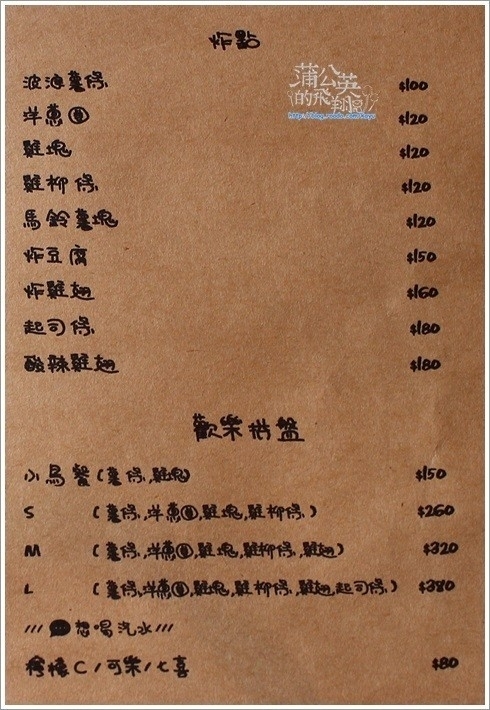 炸點
蒲公英
的飛翔
波浪薯條 $100
洋蔥圈 $120
雞塊 $120
雞柳條 $120
馬鈴薯塊 $120
炸豆腐 $150
炸雞翅 $160
起司條 $180
酸辣雞翅 $180
歡樂拼盤
小鳥餐(薯條,雞塊) $150
S (薯條,洋蔥圈,雞塊,雞柳條) $260
M (薯條,洋蔥圈,雞塊,雞柳條,雞翅) $320
L (薯條,洋蔥圈,雞塊,雞柳條,雞翅,起司條) $380
///想喝汽水///
檸檬C/可樂/七喜 $80